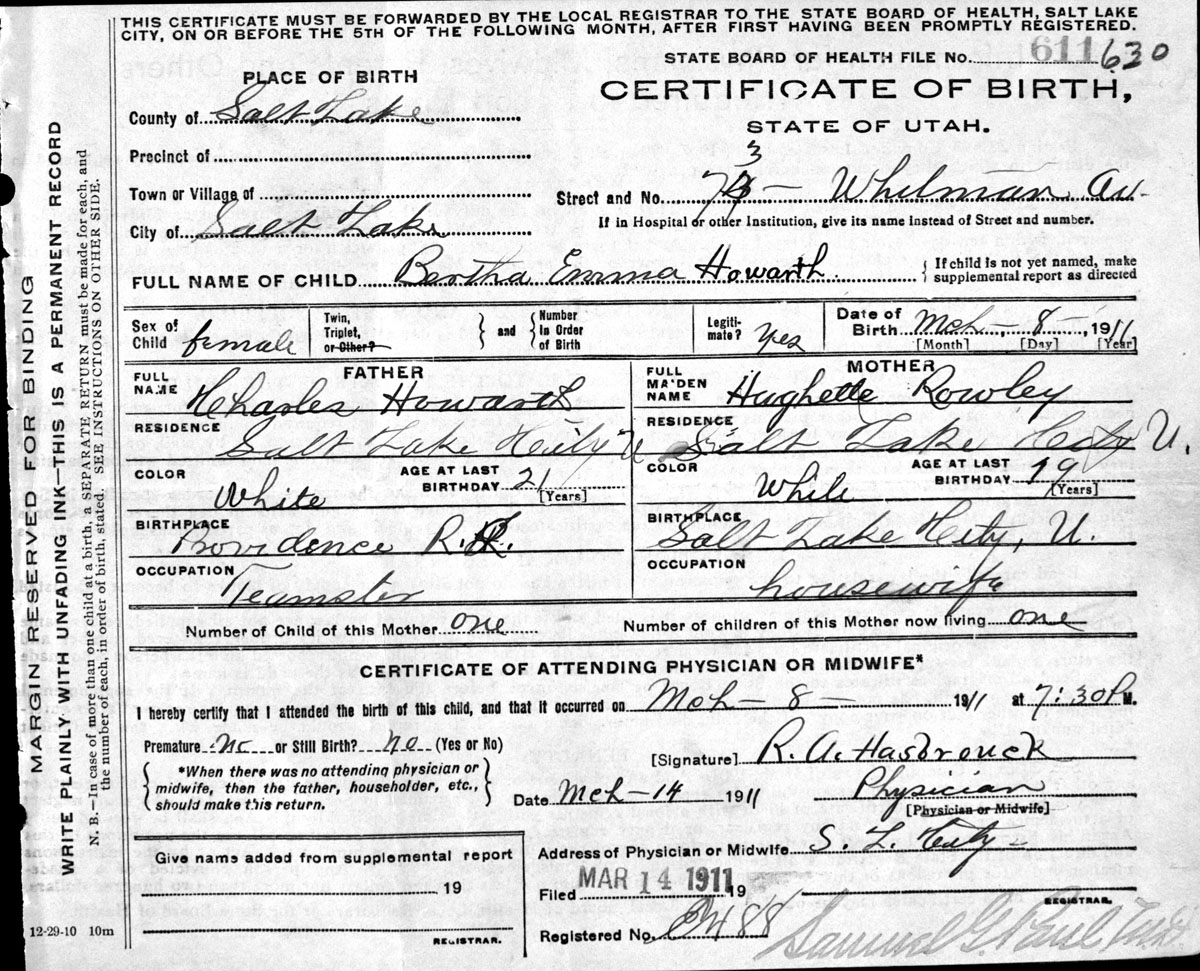 THIS CERTIFICATE MUST BE FORWARDED BY THE LOCAL REGISTRAR TO THE STATE BOARD OF HEALTH, SALT LAKE
CITY, ON OR BEFORE THE 5TH OF THE FOLLOWING MONTH, AFTER FIRST HAVING BEEN PROMPTLY REGISTERED.
STATE BOARD OF HEALTH FILE No. 611 630
PLACE OF BIRTH
CERTIFICATE OF BIRTH,
STATE OF UTAH.
County of Salt Lake
Precinct of
Town or Village of
City of Salt Lake
3
Street and No. 73 — Whilman Av-
If in Hospital or other Institution, give its name instead of Street and number.
FULL NAME OF CHILD Bertha Emma Howarth
{ If child is not yet named, make
supplemental report as directed
Sex of Child female
Twin, Triplet, or Other? } and { Number in Order of Birth
Legiti-mate? Yes
Date of Birth Mch — 8 — 1911
[Month] [Day] [Year]
FATHER
MOTHER
FULL NAME Charles Howarth
FULL MAIDEN NAME Hughette Rowley
RESIDENCE Salt Lake City U
RESIDENCE Salt Lake City U.
COLOR White
AGE AT LAST BIRTHDAY 21 [Years]
COLOR While
AGE AT LAST BIRTHDAY 19 [Years]
BIRTHPLACE Providence R.I.
BIRTHPLACE Salt Lake City, U.
OCCUPATION Teamster
OCCUPATION housewife
Number of Child of this Mother one
Number of children of this Mother now living one
CERTIFICATE OF ATTENDING PHYSICIAN OR MIDWIFE*
I hereby certify that I attended the birth of this child, and that it occurred on Mch — 8 — 1911 at 7:30 P M.
Premature no or Still Birth? no (Yes or No)
{ *When there was no attending physician or
midwife, then the father, householder, etc.,
should make this return. }
[Signature] R. A. Hasbrouck
Date Mch — 14 1911
Physician
[Physician or Midwife]
Address of Physician or Midwife S. L. City —
Give name added from supplemental report
19
REGISTRAR.
Filed MAR 14 1911 19
Registered No. 488
REGISTRAR.
12-29-10 10m
MARGIN RESERVED FOR BINDING
WRITE PLAINLY WITH UNFADING INK—THIS IS A PERMANENT RECORD
N. B.—In case of more than one child at a birth, a SEPARATE RETURN must be made for each, and
the number of each, in order of birth, stated. SEE INSTRUCTIONS ON OTHER SIDE.